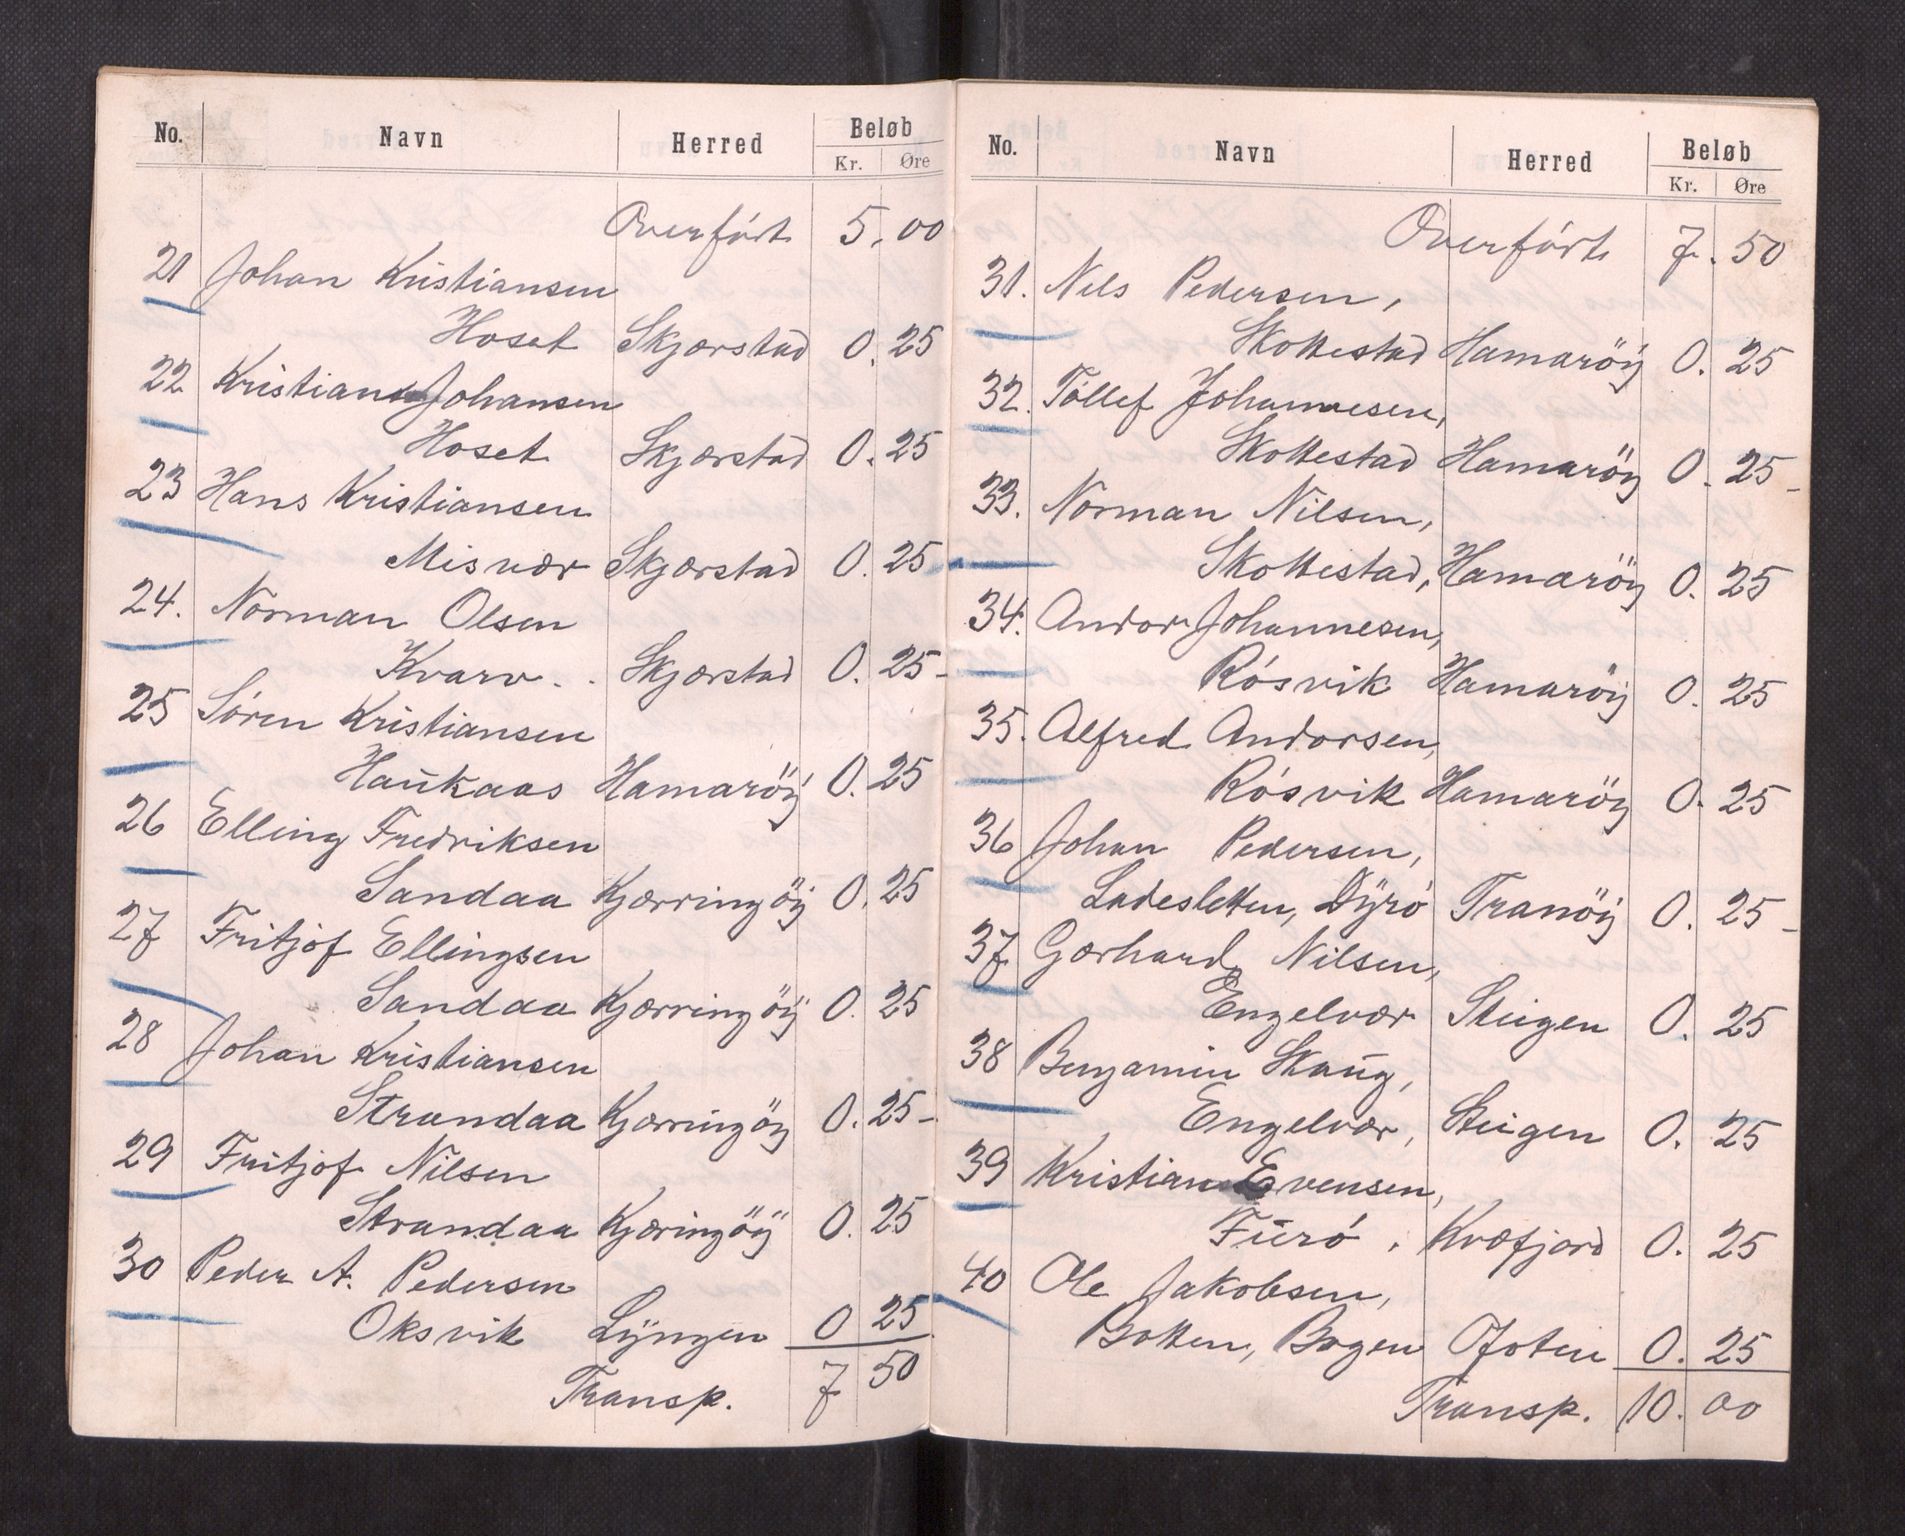 No. Navn Herred Beløb
Kr. Øre
Overført 5. 00
21 Johan Kristiansen
Hoset Skjærstad 0. 25
22 Kristian Johansen
Hoset Skjærstad 0. 25
23 Hans Kristiansen
Misvær Skjærstad 0. 25
24. Norman Olsen
Kvarv. . Skjærstad 0. 25-
25 Søren Kristiansen
Haukaas Hamaröy 0. 25
26 Elling Fredriksen
Sandaa Kjærringöy 0. 25
27 Fritjof Ellingsen
Sandaa Kjærringöy 0. 25
28 Johan Kristiansen
Strandaa Kjærringöy 0. 25-
29 Fritjof Nilsen
Strandaa Kjæringöy 0. 25
30 Peder A. Pedersen
Oksvik Lyngen 0 25
Transp. 7 50
No. Navn Herred Beløb
Kr. Øre
Overført 7. 50
31. Nils Pedersen,
Skottestad Hamaröy 0. 25
32. Tøllef Johannesen,
Skottestad Hamaröy 0. 25-
33. Norman Nilsen,
Skottestad, Hamaröy 0. 25
34. Andor Johannesen,
Røsvik Hamaröy 0. 25
35. Alfred Andorsen,
Røsvik Hamaröy 0. 25
36 Johan Pedersen,
Ladesletten, Dyrø Tranöy 0. 25-
37 Gærhard Nilsen,
Engelvær Steigen 0. 25
38 Benjamin Skaug,
Engelvær, Steigen 0. 25
39 Kristian Evensen,
Furø, Kvæfjord 0. 25
40 Ole Jakobsen,
Botten, Bogen Ofoten 0. 25
Transp. 10. 00